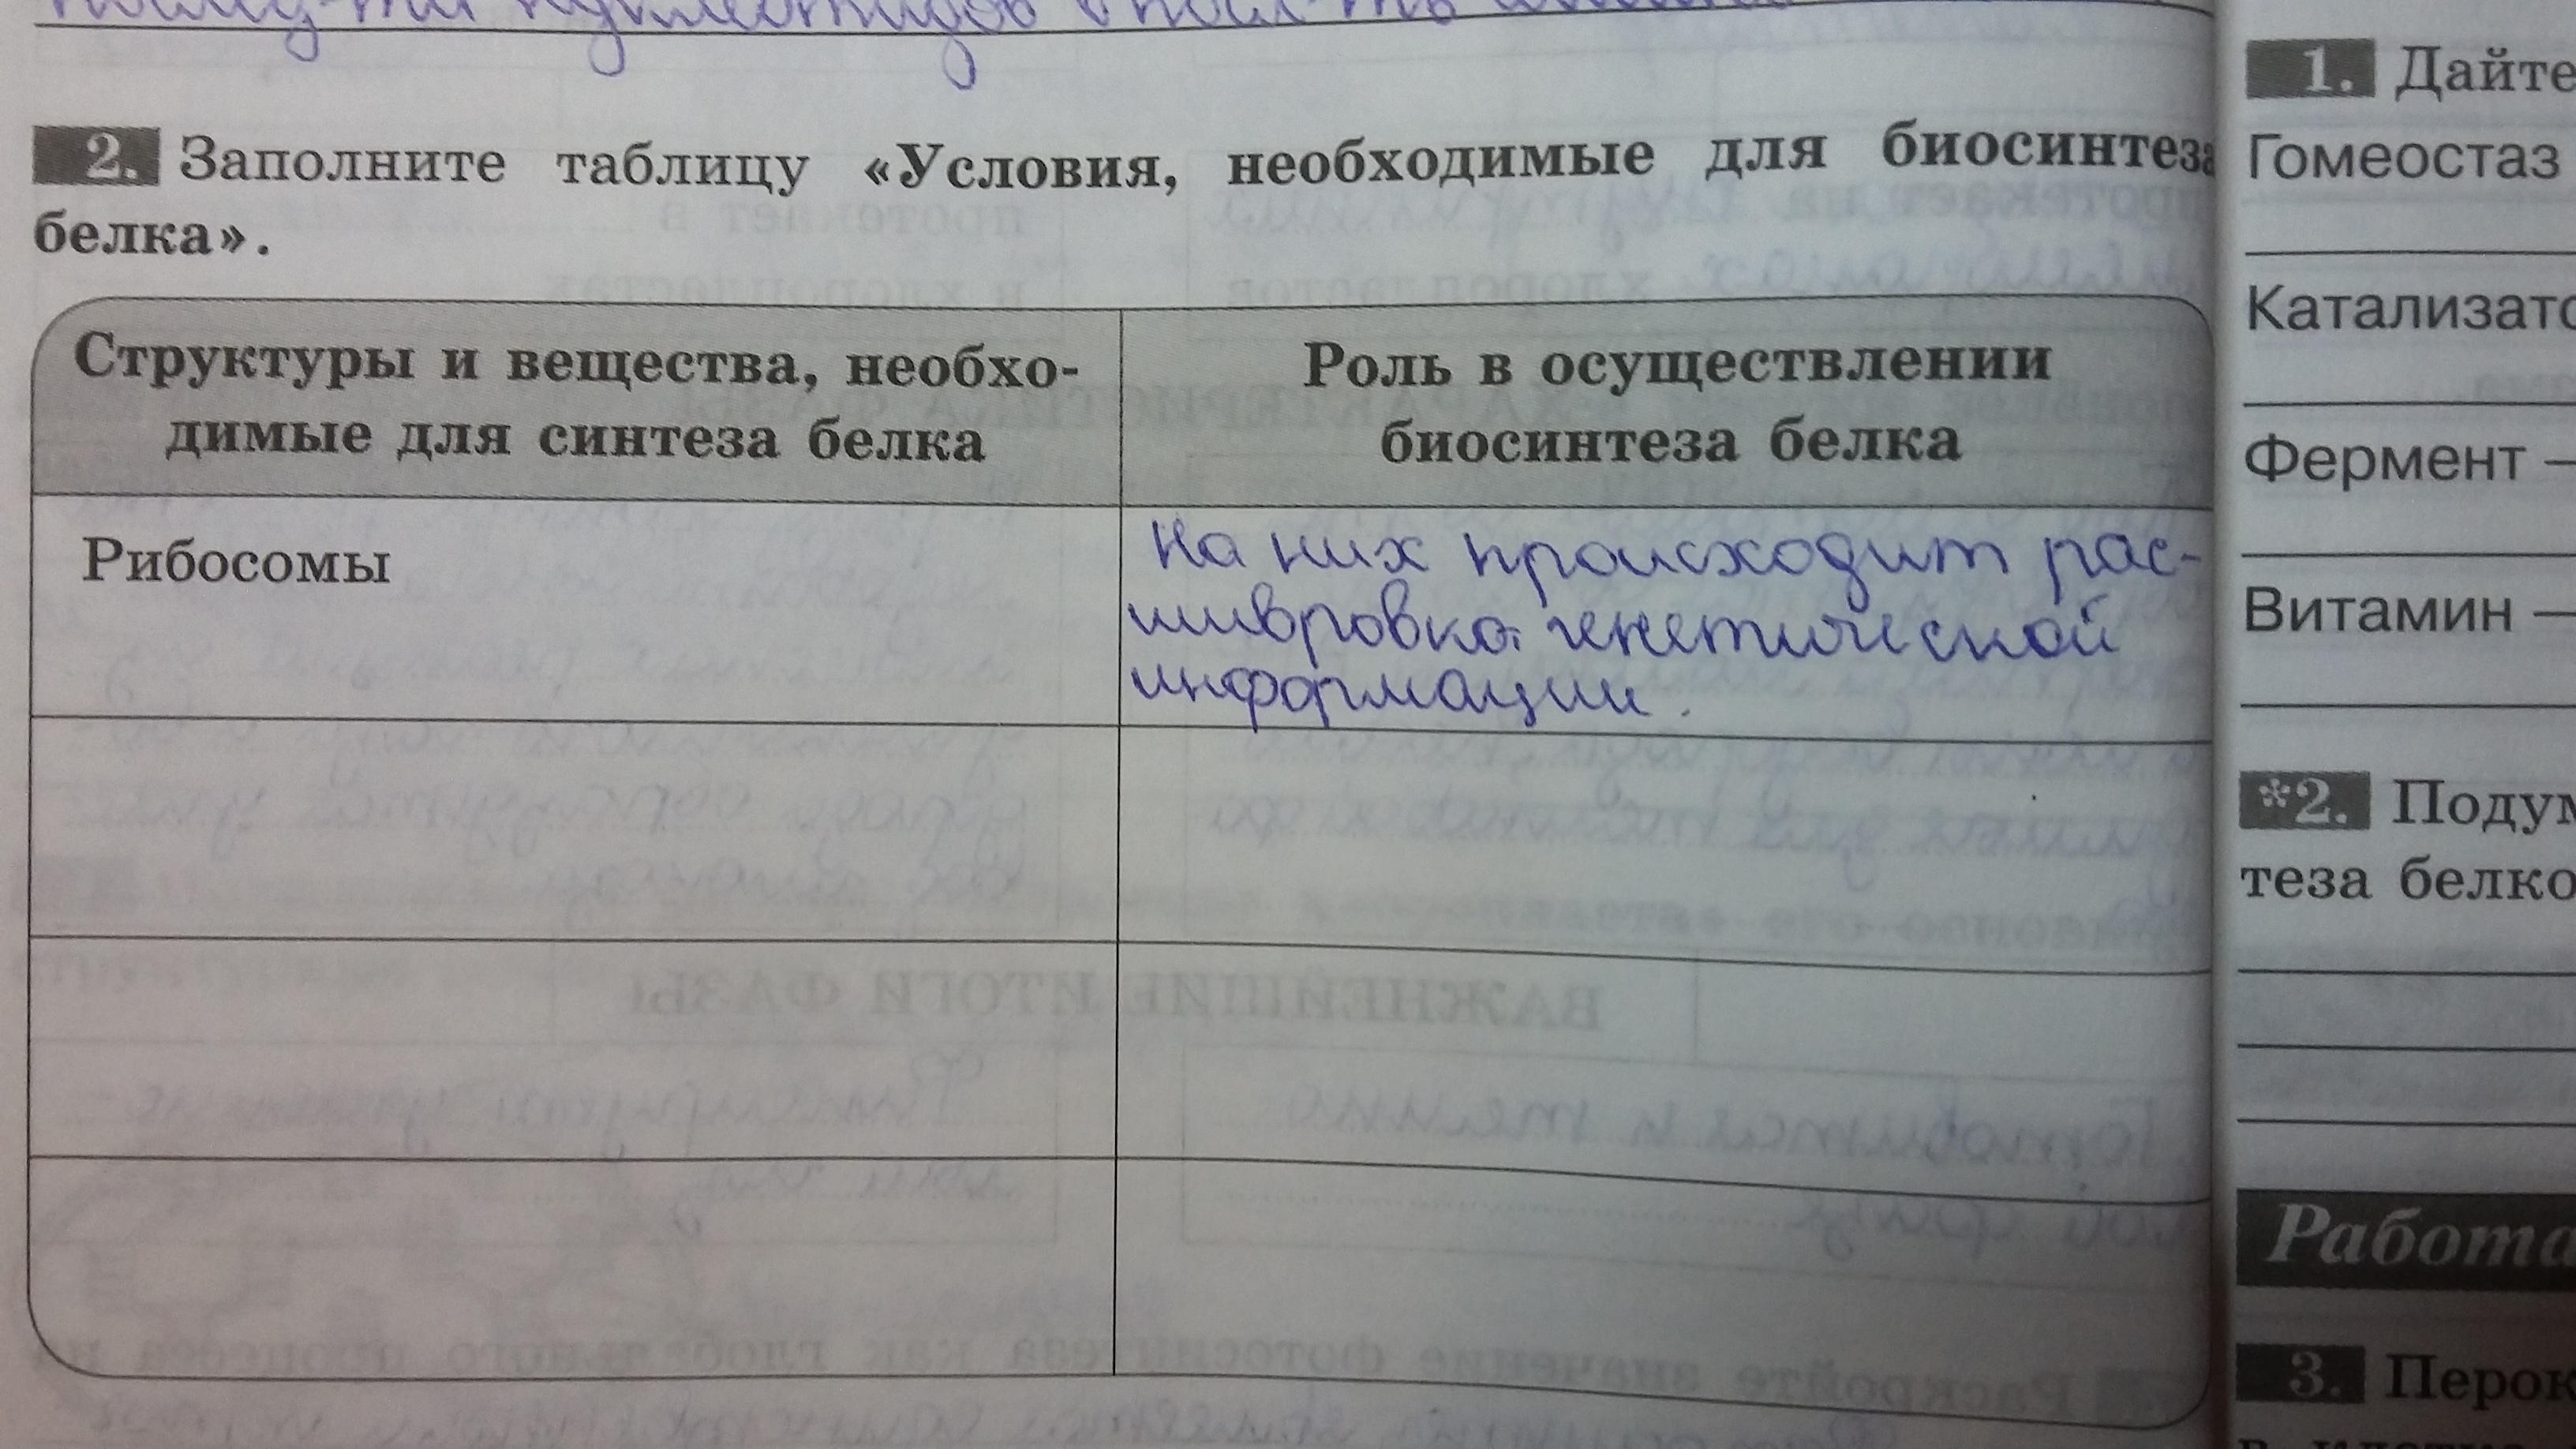 2. Заполните таблицу «Условия, необходимые для биосинтеза
белка».
Структуры и вещества, необхо-
димые для синтеза белка
Роль в осуществлении
биосинтеза белка
Рибосомы
На них происходит рас-
шивровка генетической
информации.
1. Дайте
Гомеостаз
Катализато
Фермент –
Витамин –
*2. Подум
теза белко
Работа
3. Перок